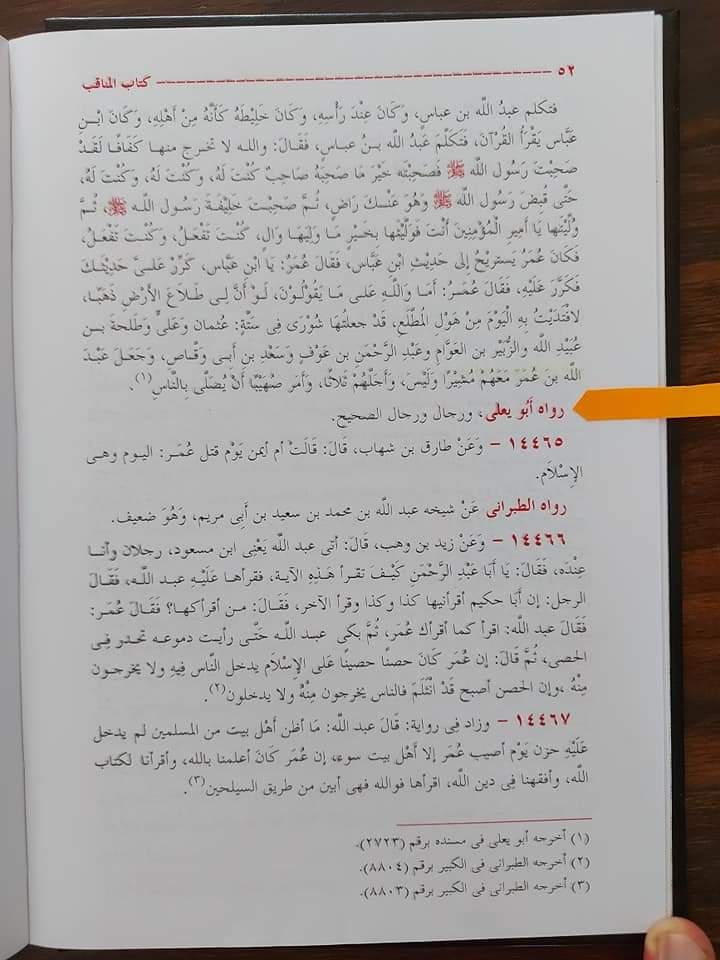 ٥٢ ــــــــــــــــــــــــــــــــــــــــــــــ كتاب المناقب
فتكلم عبدُ اللَّه بن عباسٍ، وَكَانَ عِنْدَ رَأْسِهِ، وَكَانَ خَلِيْطَهُ كَأَنَّهُ مِنْ أَهْلِهِ، وَكَانَ ابْن
عَبَّاس يَقْرَأُ القُرْآنَ، فَتَكَلَّمَ عَبْدُ اللَّه بنُ عباسٍ، فَقَالَ: واللـه لا تخـرج منهـا كَفَافًـا لَقَدْ
صَحِبْتَ رَسُول اللَّه ﷺ فَصَحِبْتَه خَيْرَ مَا صَحِبَهُ صَاحِبٌ كُنْتَ لَهُ، وَكُنْتَ لَهُ، وَكُنْتَ لَهُ،
حَتَّى قُبِضَ رَسُول اللَّه ﷺ وَهُوَ عَنْـكَ رَاضٍ، ثُـمَّ صَحِبْـتَ خَلِيْفَـةَ رَسُـول اللَّـه ﷺ، ثُـمَّ
وُلِّيْتَها يَا أَمِير الْمُؤْمِنِينَ أَنْتَ فَوَلِّيْتَها بِخَيْـرِ مَـا وَلِيَهَـا وَالٍ، كُنْـتَ تَفْعَلُ، وَكُنْـتَ تَفْعَلُ،
فَكَانَ عُمَرُ يَسْتَرِيْحُ إِلَى حَدِيْثِ ابْنِ عَبَّاسٍ، فَقَالَ عُمَرُ: يَا ابْنَ عَبَّاسٍ، كَرِّرْ عَلـىَّ حَدِيْثَـكَ
فَكَرَّرَ عَلَيْهِ، فَقَالَ عُمَـرُ: أَمَـا وَاللَّـهِ عَلـى مَـا يَقُوْلُـوْنَ، لَـوْ أَنَّ لِـى طَـلَاعَ الأَرْضِ ذَهَبًـا،
لافْتَدَيْتُ بِهِ الْيَوْمَ مِنْ هَوْلِ المُطَّلَعِ، قَدْ جعلتُها شُوْرَى فِى سِتَّةٍ: عُثمان وَعَلىٍّ وَطَلحةَ بـن
عُبَيْدِ اللَّه والزُّبَيْر بن العَوَّامِ وعَبْدِ الرَّحْمَنِ بن عَوْفٍ وَسَعْدِ بن أَبِـى وَقَّـاص، وَجَعَـلَ عَبْـدَ
اللَّه بن عُمَرَ مَعَهُمْ مُشِيْرًا وَلَيْسَ، وَأَجَلَهُمْ ثَلاَثًا، وَأَمَر صُهَيْبًا أَنْ يُصَلَّى بِالنَّاسِ(١).
رواه أَبُو يعلى، ورجال ورجال الصحيح.
١٤٤٦٥ - وَعَنْ طارق بن شهاب، قَالَ: قَالَتْ أم أيمن يَوْم قتل عُمَـر: اليـوم وهـى
الإِسْلاَم.
رواه الطبرانى عَنْ شيخه عبد اللَّه بن محمد بن سعيد بن أَبِى مريم، وَهُوَ ضعيف.
١٤٤٦٦ - وَعَنْ زيد بن وهب، قَالَ: أتى عبد اللَّه يَعْنِى ابن مسعود، رجلان وأنـا
عِنْدَه، فَقَالَ: يَا أَبَا عَبْدِ الرَّحْمَنِ كَيْـفَ تقـرأ هَـذِهِ الآيـة، فقرأهـا عَلَيْـهِ عبـد اللَّـه، فَقَالَ
الرجل: إن أَبَا حكيم أقرأنيها كذا وكذا وقرأ الآخر، فَقَالَ: مـن أقرأكهـا؟ فَقَالَ عُمَـر:
فَقَالَ عبد اللَّه: اقرأ كما أقرأك عُمَر، ثُمَّ بكى عبـد اللَّـه حَتَّـى رأيـت دموعـه تحـدر فِـى
الحصى، ثُمَّ قَالَ: إن عُمَر كَانَ حصنًا حصينًا عَلَى الإِسْلاَم يدخل النَّاس فِيهِ ولا يخرجـون
مِنْهُ ،وإن الحصن أصبح قَدْ انْثَلَمَ فالناس يخرجون مِنْهُ ولا يدخلون(٢).
١٤٤٦٧ - وزاد فِى رواية: قَالَ عبد اللَّه: مَا أظن أَهْل بيت من المسلمين لم يدخل
عَلَيْهِ حزن يَوْم أصيب عُمَر إلا أَهْل بيت سوء، إن عُمَر كَانَ أعلمنا بالله، وأقرأنا لكتاب
اللَّه، وأفقهنا فِى دين اللَّه، اقرأها فوالله فهى أبين من طريق السيلحين(٣).
(١) أخرجه أبو يعلى فى مسنده برقم (٢٧٢٣).
(٢) أخرجه الطبرانى فى الكبير برقم (٨٨٠٤).
(٣) أخرجه الطبرانى فى الكبير برقم (٨٨٠٣).